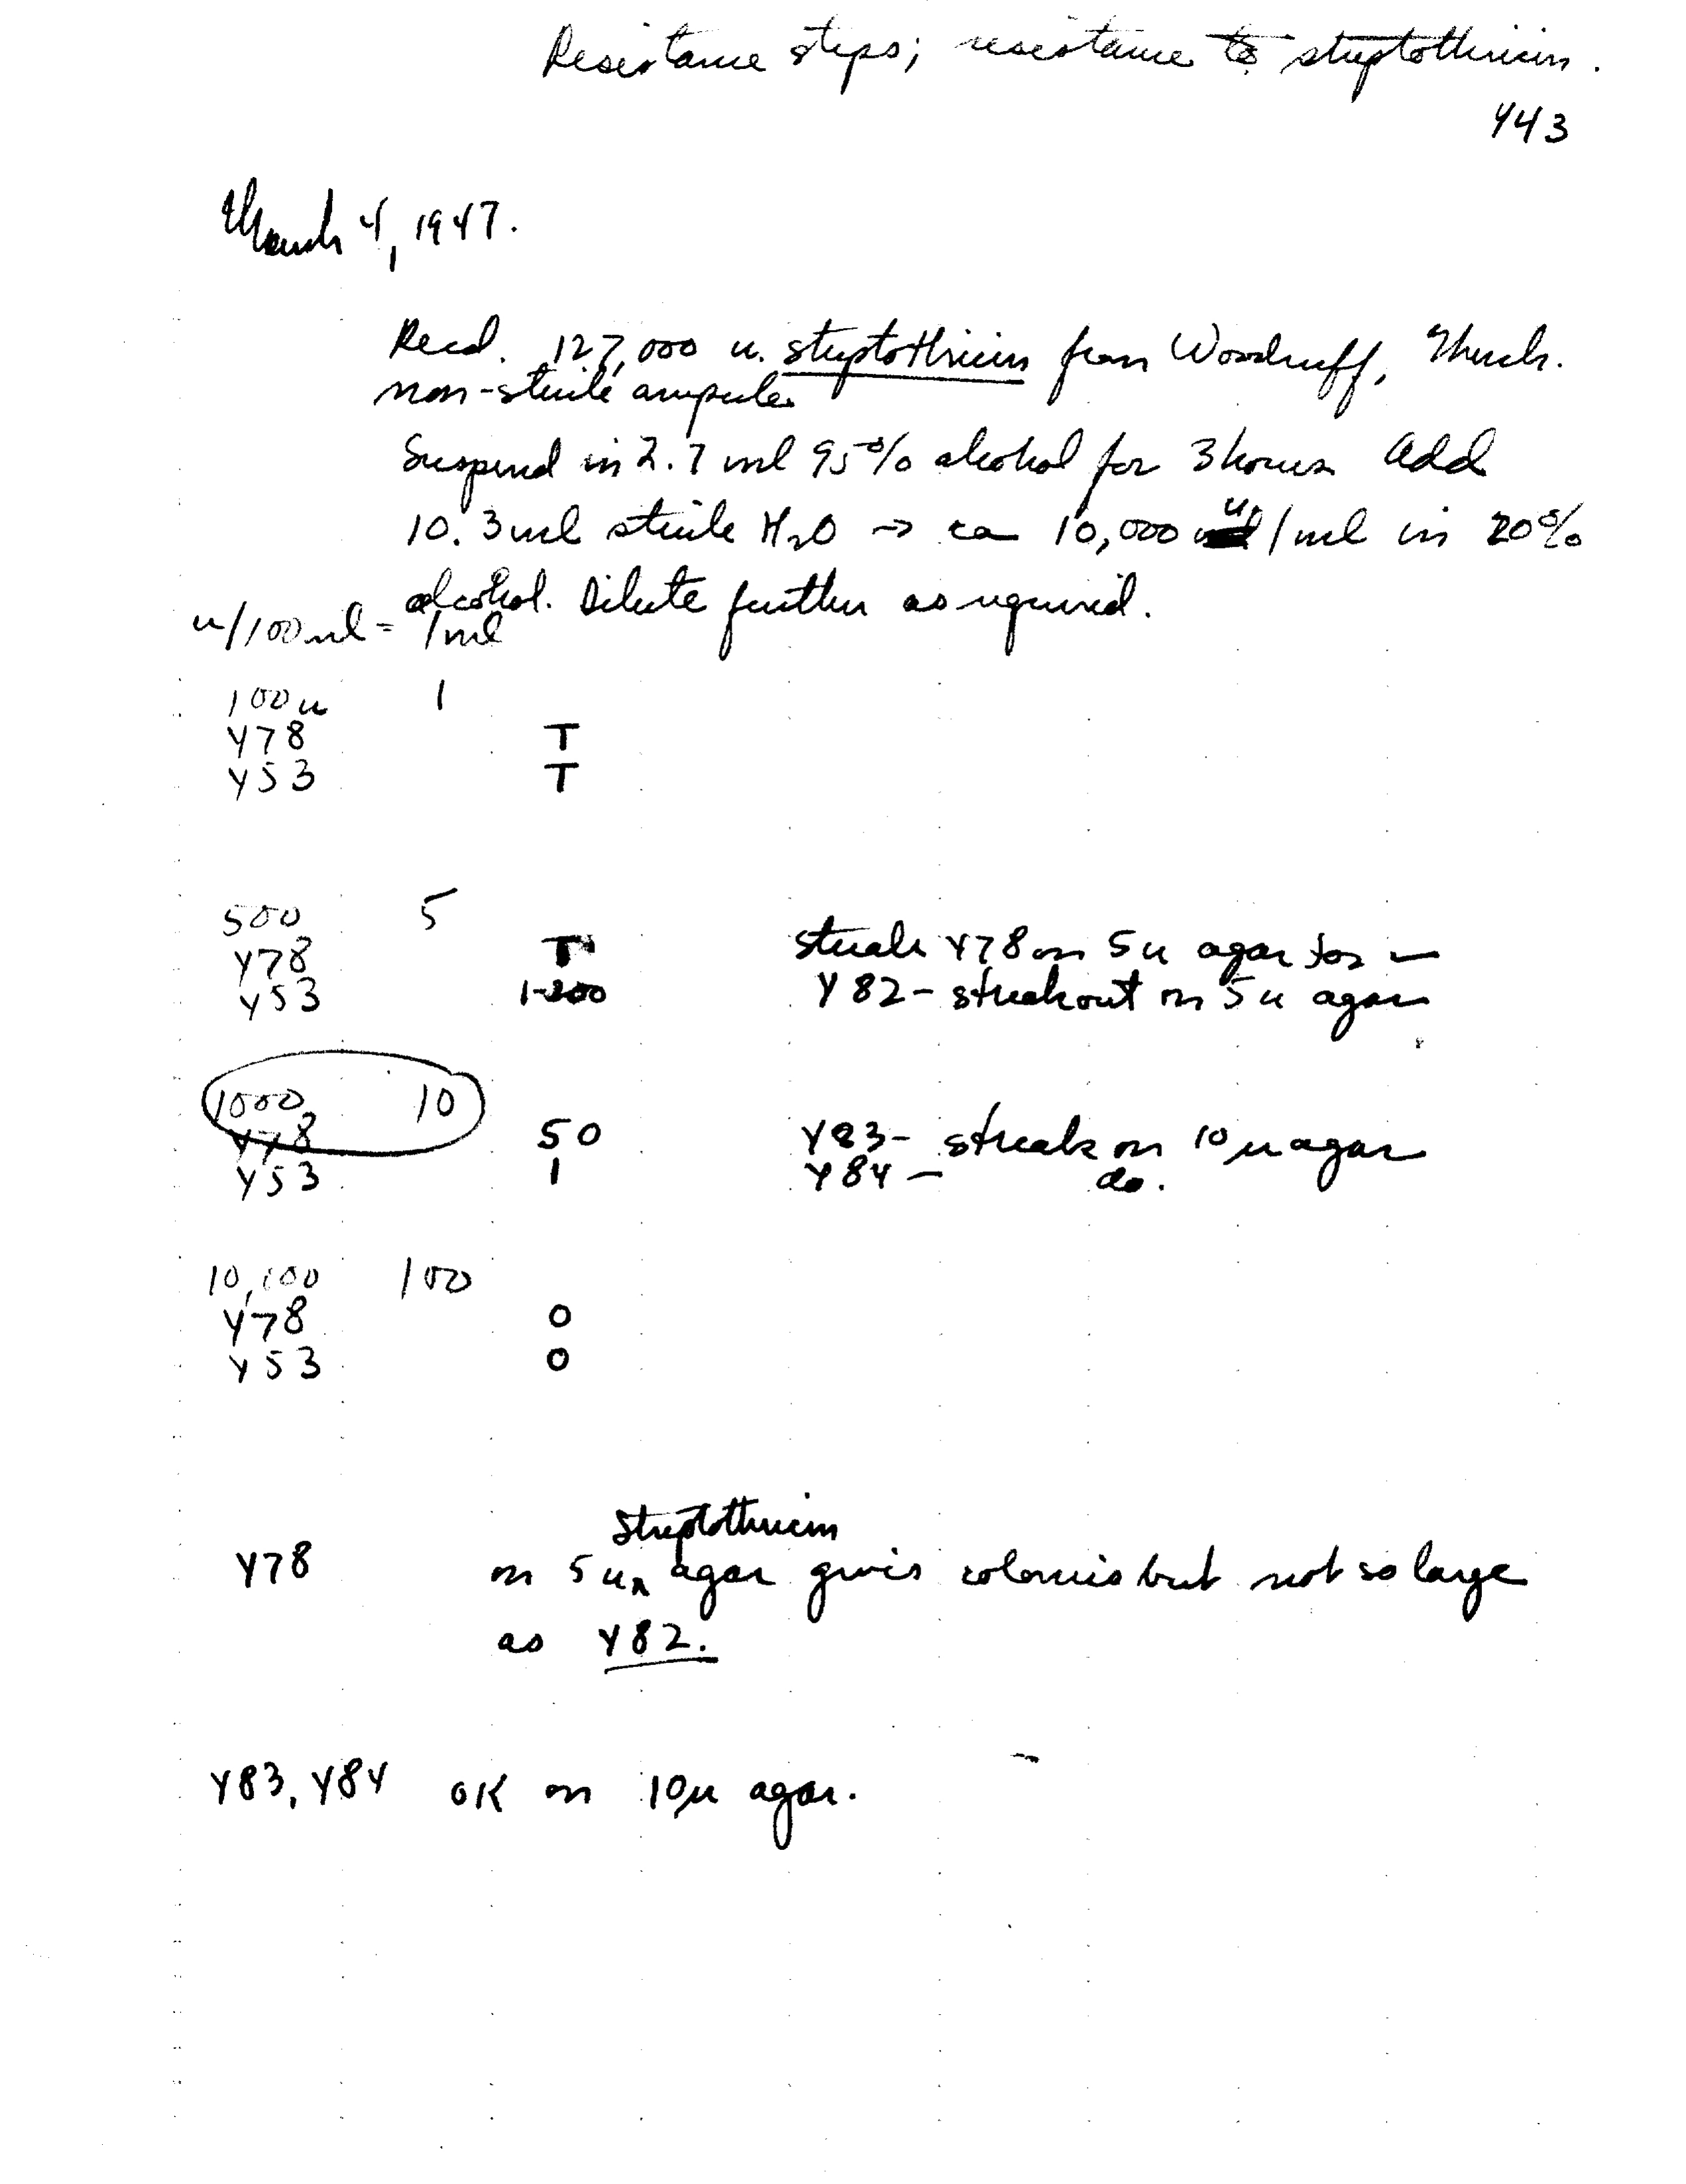 Resistance steps; resistance to streptothricin.
443
March 4, 1947.
Recd. 127,000 u. streptothricin from Woodruff, Merck.
non-sterile ampule.
Suspend in 2.7 ml 95% alcohol for 3 hours. Add
10.3 ml sterile H2O → ca 10,000 u/ml in 20%
alcohol. Dilute further as required.
u/100 ml = /ml
100 u 1
Y78 T
Y53 T
500 5
Y78 T streak Y78 on 5 u agar
Y53 1-200 Y82 - streakout on 5 u agar
1000 10
Y78 50 Y83 - streak on 10 u agar
Y53 1 Y84 - do.
10,000 100
Y78 0
Y53 0
Streptothricin
Y78 on 5 u agar gives colonies but not so large
as Y82.
Y83, Y84 OK on 10 u agar.